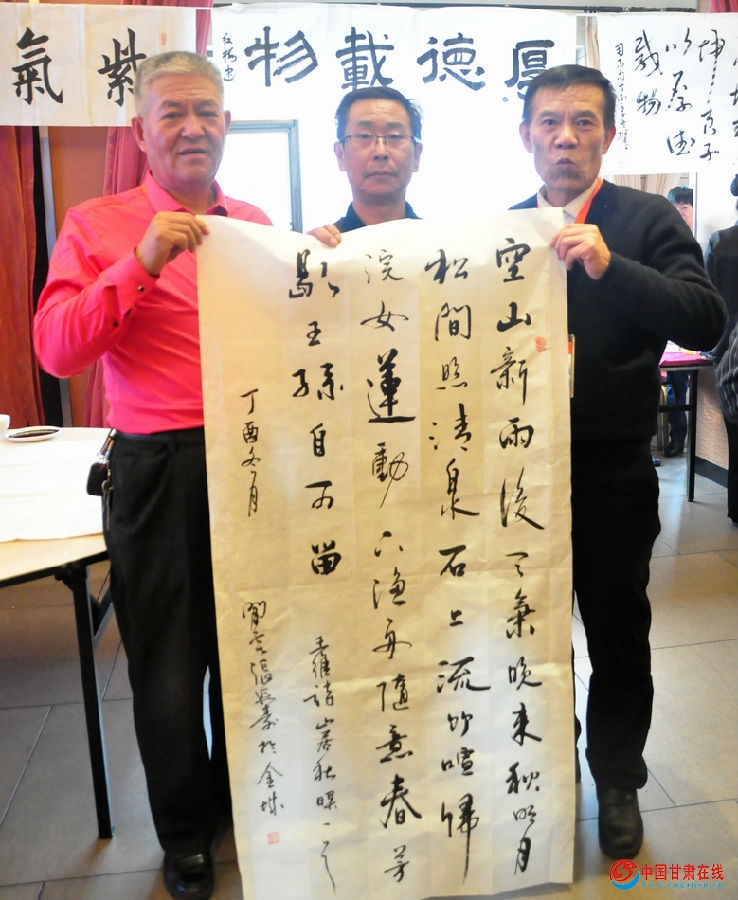 紫氣
厚德載物
君子
以厚德
載物
空山新雨後天氣晚来秋明月
松間照清泉石上流竹喧歸
浣女蓮動下漁舟隨意春芳
歇王孫自可留
王維詩山居秋暝一首
丁酉冬月
張 於金城
中国甘肃在线